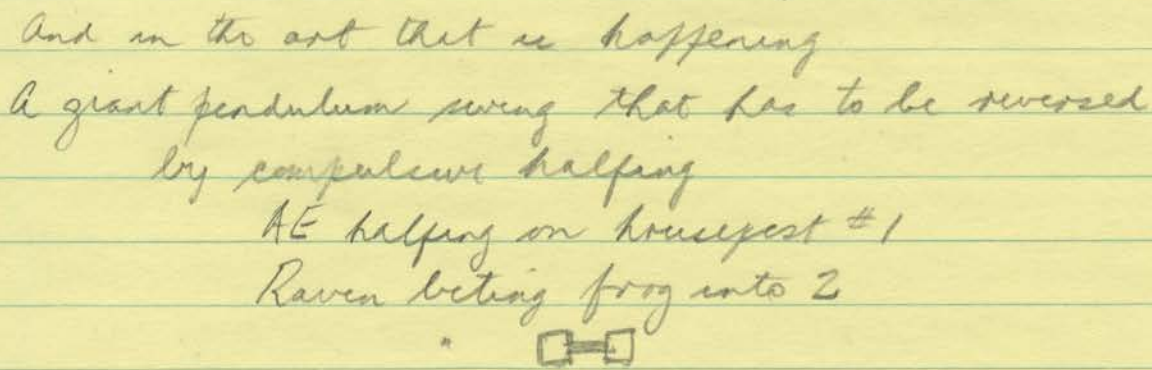 And in the art that is happening
A giant pendulum swing that has to be reversed
by compulsive halfing
AE halfing on housepost #1
Raven biting frog into 2